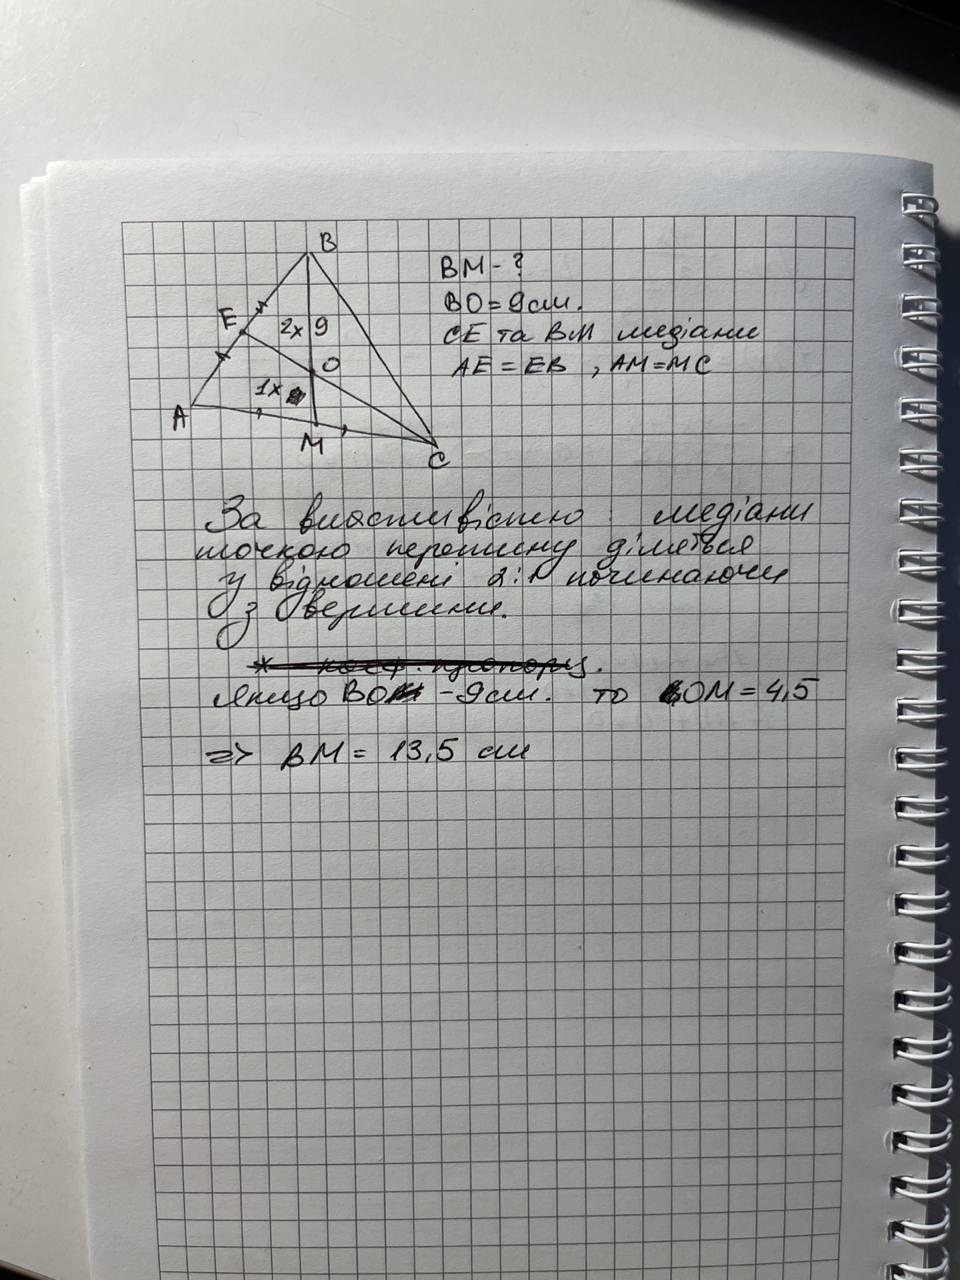 B
E
2x 9
O
1x
A
M
C
BM - ?
BO = 9 см.
CE та BM медіани
AE = EB , AM = MC
За властивістю : медіани
точкою перетину діляться
у відношені 2:1 починаючи
з вершини.
* коеф. пропорц.
якщо BO - 9 см. то OM = 4,5
=> BM = 13,5 см